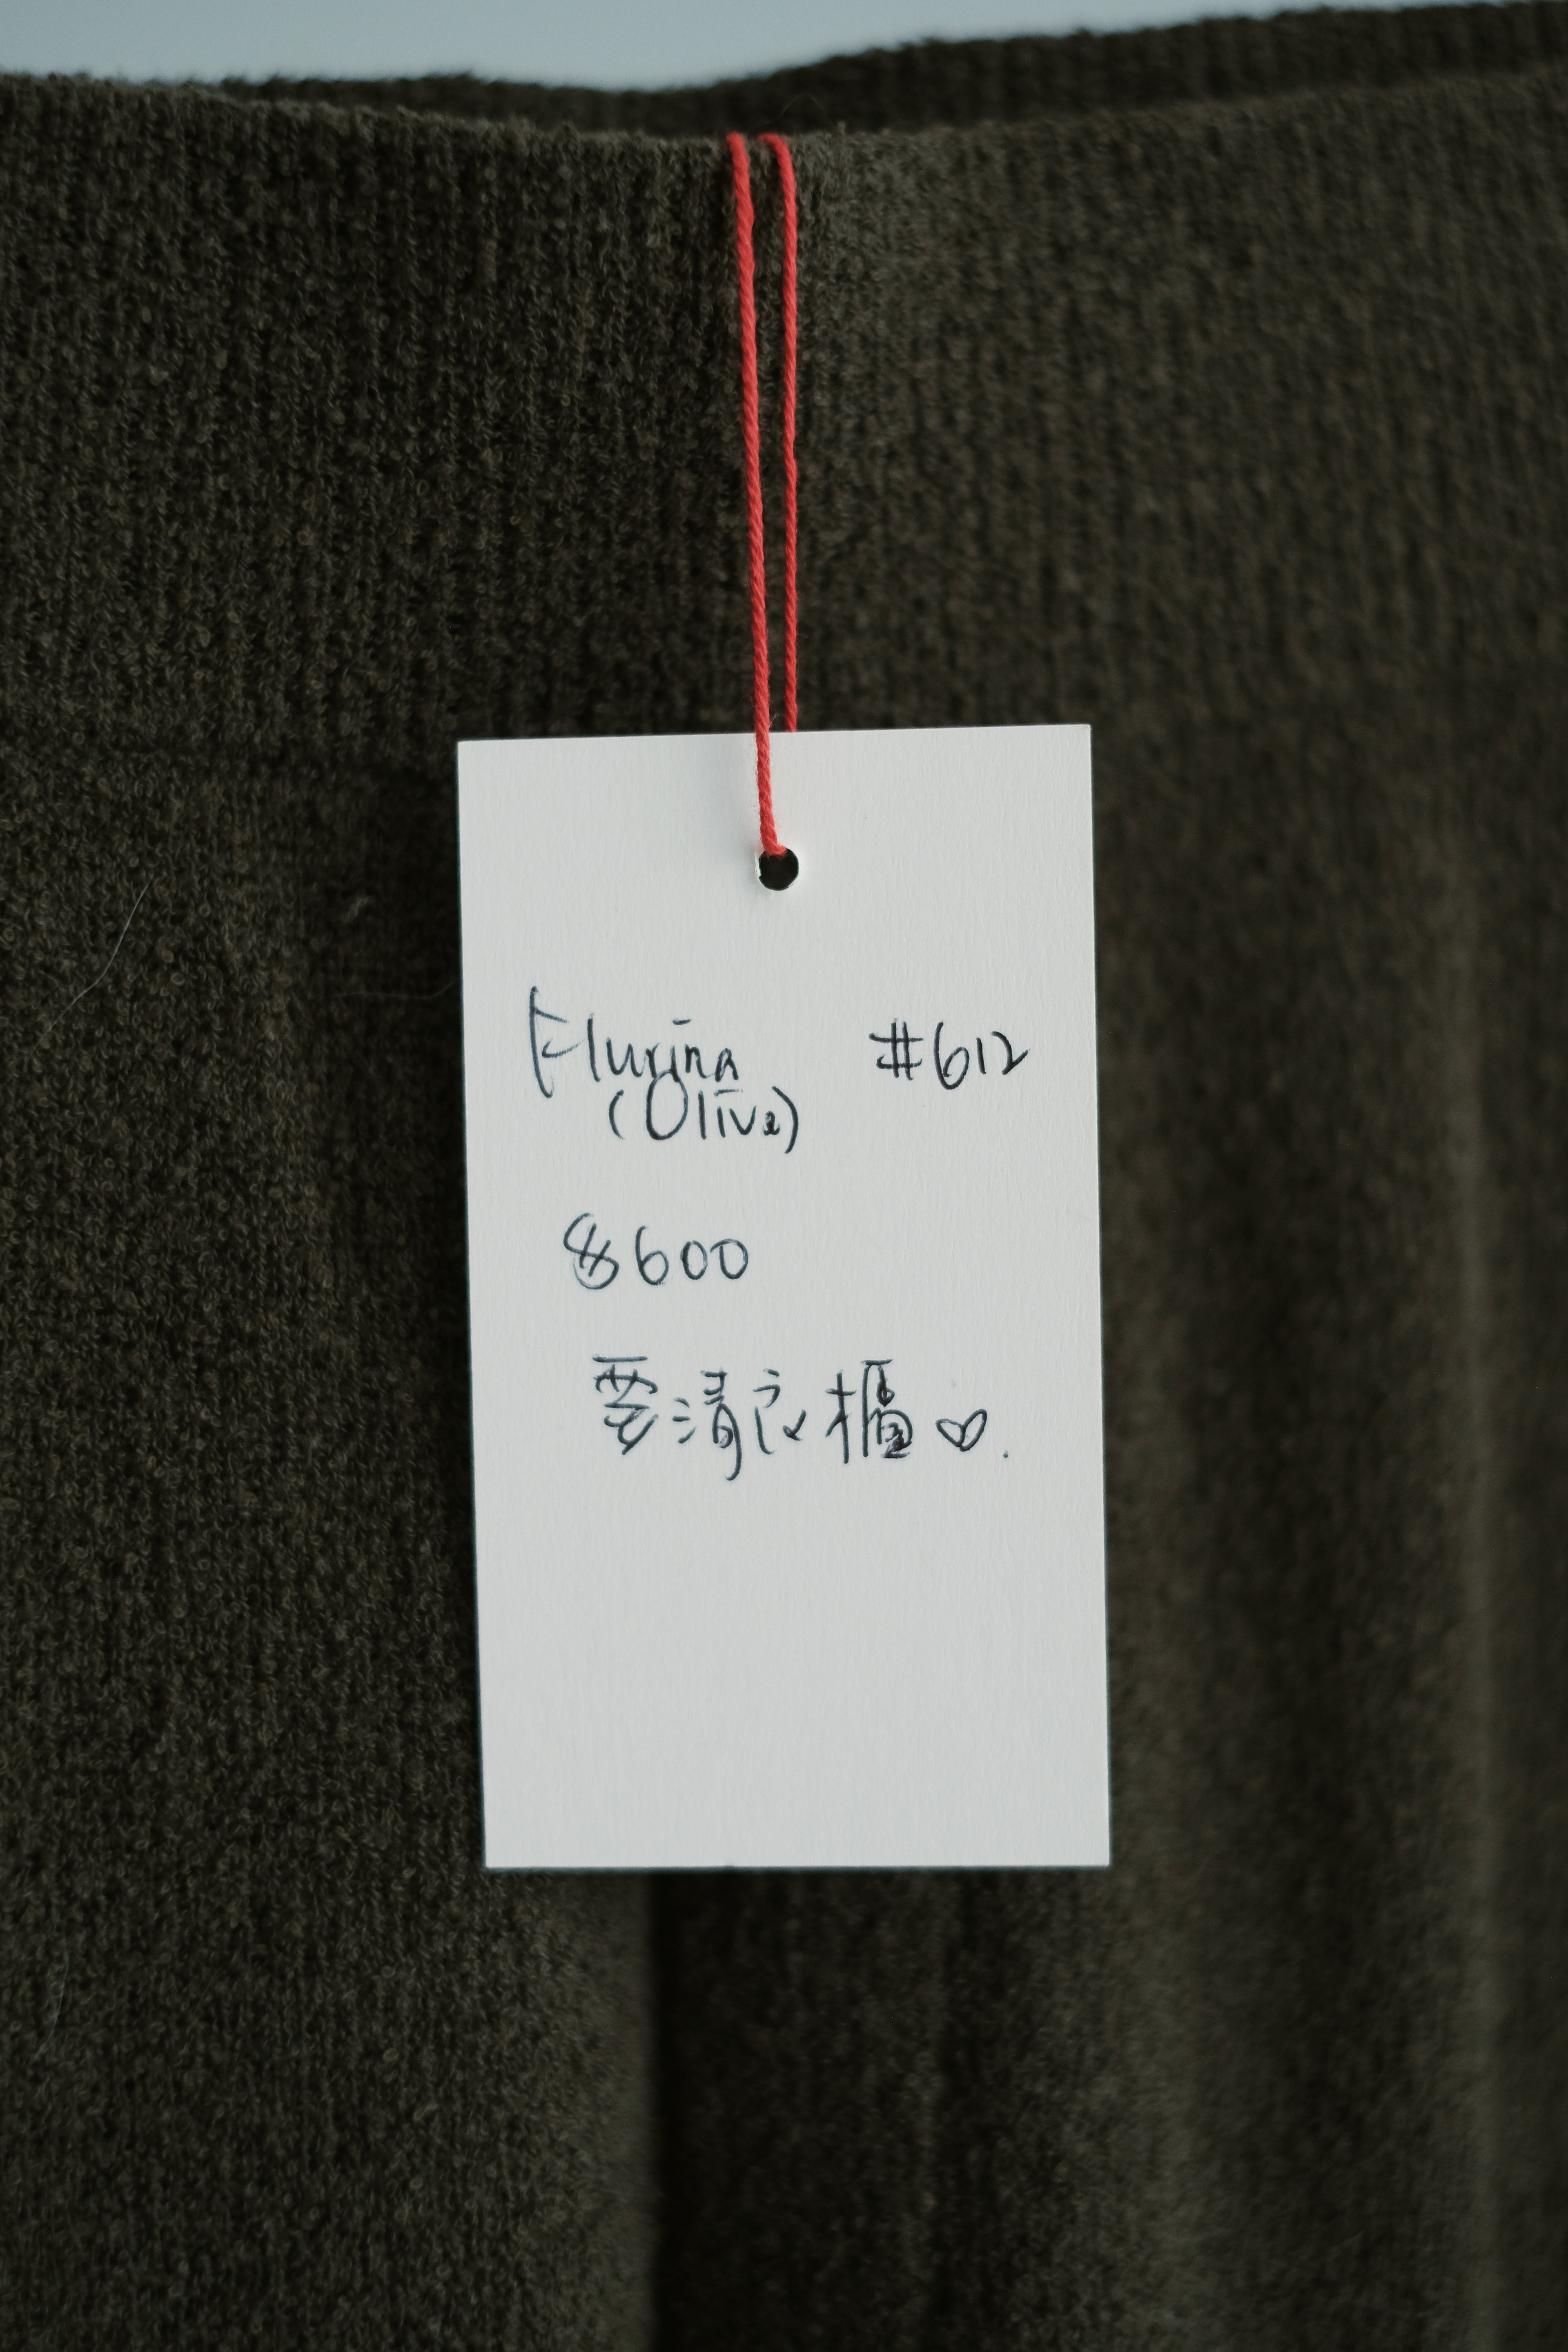 Flurina #612
(Olive)
$600
要清衣櫃♡.